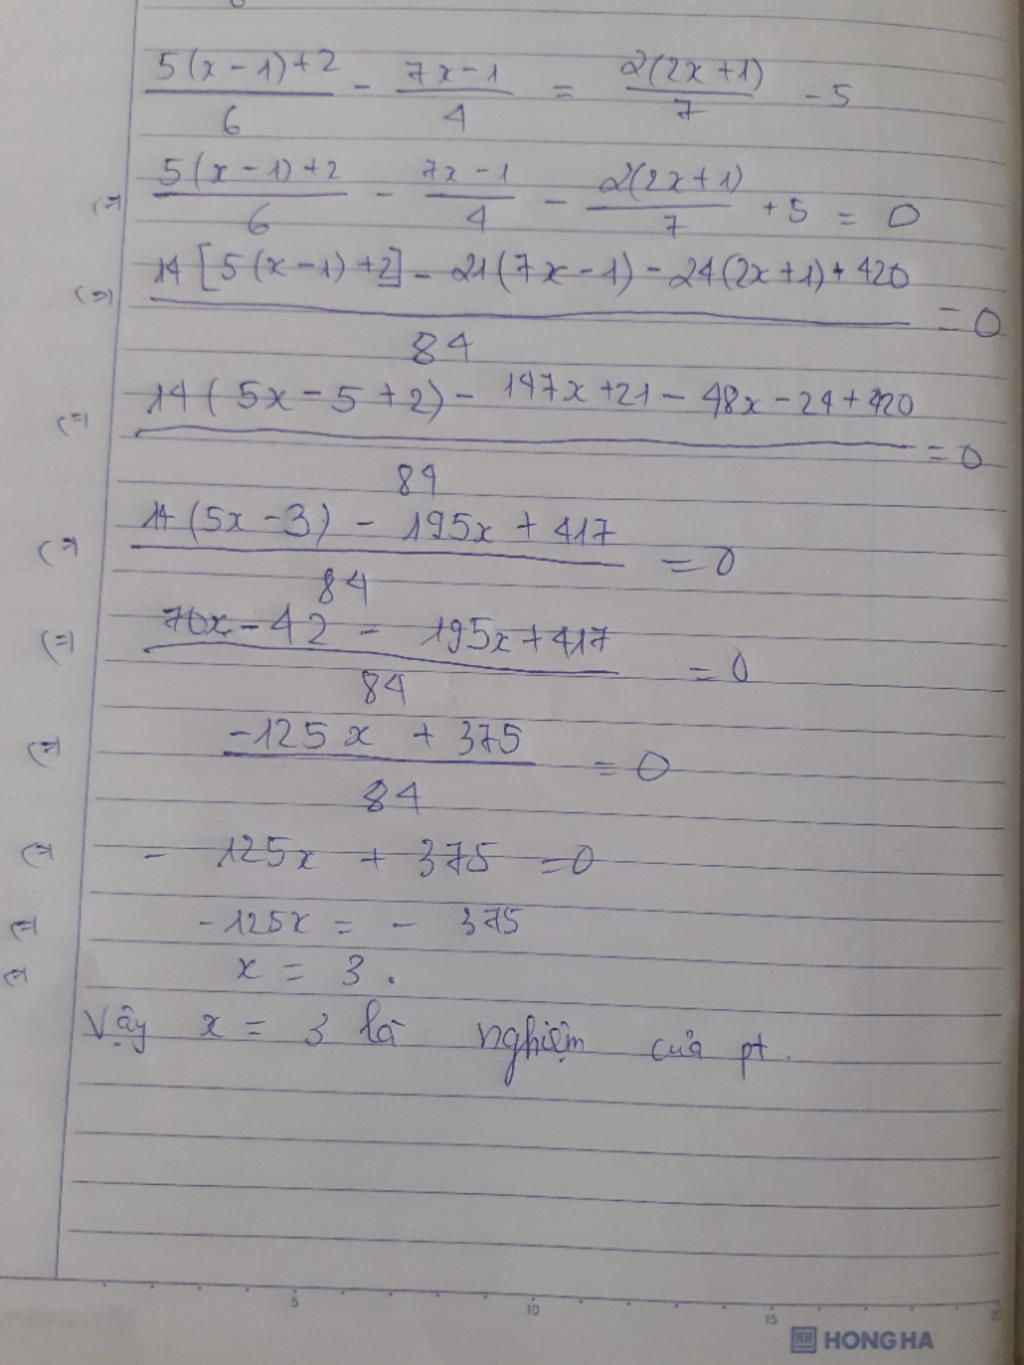 5(x-1)+2/6 - 7x-1/4 = 2(2x+1)/7 - 5
(=) 5(x-1)+2/6 - 7x-1/4 - 2(2x+1)/7 + 5 = 0
(=) 14[5(x-1)+2] - 21(7x-1) - 24(2x+1) + 420/84 = 0
(=) 14(5x-5+2) - 147x+21 - 48x - 24 + 420/84 = 0
(=) 14(5x-3) - 195x + 417/84 = 0
(=) 70x - 42 - 195x + 417/84 = 0
(=) -125x + 375/84 = 0
(=) - 125x + 375 = 0
(=) -125x = - 375
(=) x = 3.
Vậy x = 3 là nghiệm của pt.
5 10 15 20
HH HONG HA